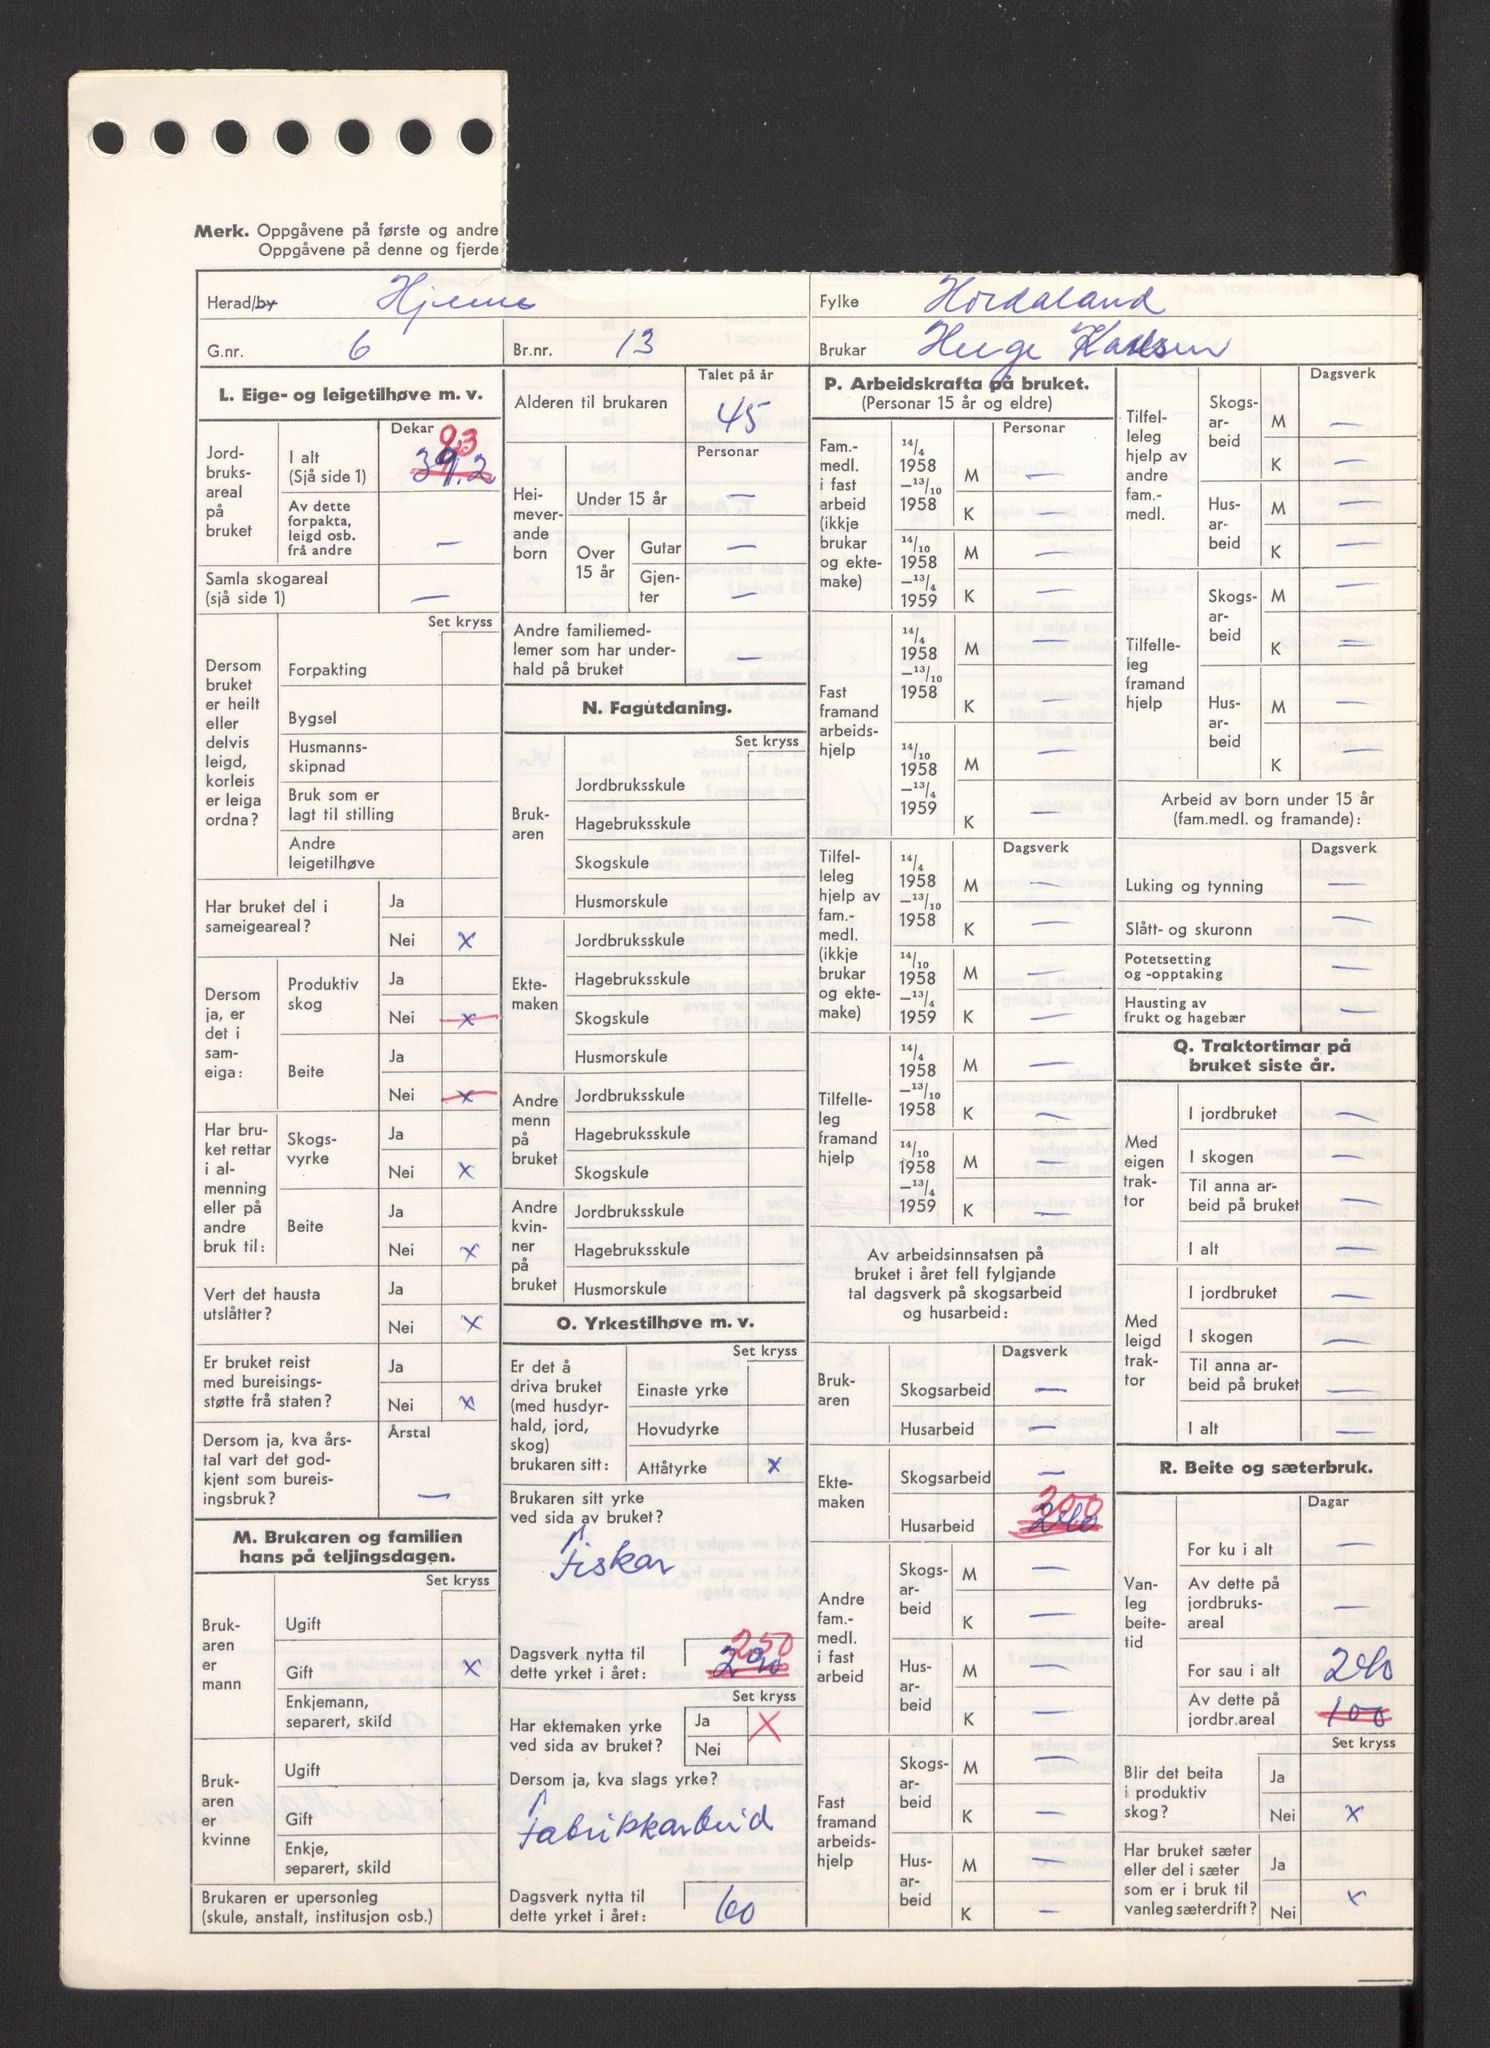 Merk. Oppgåvene på første og andre
Oppgåvene på denne og fjerde
Herad/by Hjelme
Fylke Hordaland
G.nr. 6
Br.nr. 13
Brukar Helge Karlsen
L. Eige- og leigetilhøve m. v.
Jord-
bruks-
areal
på
bruket
I alt
(Sjå side 1)
Dekar
9.3
Av dette
forpakta,
leigd osb.
frå andre
—
Samla skogareal
(sjå side 1)
—
Set kryss
Dersom
bruket
er heilt
eller
delvis
leigd,
korleis
er leiga
ordna?
Forpakting
Bygsel
Husmanns-
skipnad
Bruk som er
lagt til stilling
Andre
leigetilhøve
Har bruket del i
sameigeareal?
Ja
Nei x
Dersom
ja, er
det i
sam-
eiga:
Produktiv
skog
Ja
Nei x
Beite
Ja
Nei x
Har bru-
ket rettar
i al-
menning
eller på
andre
bruk til:
Skogs-
vyrke
Ja
Nei x
Beite
Ja
Nei x
Vert det hausta
utslåtter?
Ja
Nei x
Er bruket reist
med bureisings-
støtte frå staten?
Ja
Nei x
Dersom ja, kva års-
tal vart det god-
kjent som bureis-
ingsbruk?
Årstal
—
M. Brukaren og familien
hans på teljingsdagen.
Set kryss
Bruk-
aren
er
mann
Ugift
Gift x
Enkjemann,
separert, skild
Bruk-
aren
er
kvinne
Ugift
Gift
Enkje,
separert, skild
Brukaren er upersonleg
(skule, anstalt, institusjon osb.)
Talet på år
Alderen til brukaren 45
Personar
Hei-
mever-
ande
born
Under 15 år —
Over
15 år
Gutar —
Gjen-
ter —
Andre familiemed-
lemer som har under-
hald på bruket —
N. Fagutdaning.
Set kryss
Bruk-
aren
Jordbruksskule
Hagebruksskule
Skogskule
Husmorskule
Ekte-
maken
Jordbruksskule
Hagebruksskule
Skogskule
Husmorskule
Andre
menn
på
bruket
Jordbruksskule
Hagebruksskule
Skogskule
Andre
kvin-
ner
på
bruket
Jordbruksskule
Hagebruksskule
Husmorskule
O. Yrkestilhøve m. v.
Set kryss
Er det å
driva bruket
(med husdyr-
hald, jord,
skog)
brukaren sitt:
Einaste yrke
Hovudyrke
Attåtyrke x
Brukaren sitt yrke
ved sida av bruket?
Fiskar
Dagsverk nytta til
dette yrket i året: 250
Set kryss
Har ektemaken yrke
ved sida av bruket?
Ja X
Nei
Dersom ja, kva slags yrke?
Fabrikkarbeid
Dagsverk nytta til
dette yrket i året: 60
P. Arbeidskrafta på bruket.
(Personar 15 år og eldre)
Personar
Fam.-
medl.
i fast
arbeid
(ikkje
brukar
og ekte-
make)
14/4
1958
—13/10
1958
M —
K —
14/10
1958
—13/4
1959
M —
K —
Fast
framand
arbeids-
hjelp
14/4
1958
—13/10
1958
M —
K —
14/10
1958
—13/4
1959
M —
K —
Dagsverk
Tilfel-
leleg
hjelp av
fam.-
medl.
(ikkje
brukar
og ekte-
make)
14/4
1958
—13/10
1958
M —
K —
14/10
1958
—13/4
1959
M —
K —
Tilfelle-
leg
framand
hjelp
14/4
1958
—13/10
1958
M —
K —
14/10
1958
—13/4
1959
M —
K —
Av arbeidsinnsatsen på
bruket i året fell fylgjande
tal dagsverk på skogsarbeid
og husarbeid:
Dagsverk
Bruk-
aren
Skogsarbeid —
Husarbeid —
Ekte-
maken
Skogsarbeid —
Husarbeid 200 240
Andre
fam.-
medl.
i fast
arbeid
Skogs-
ar-
beid
M —
K —
Hus-
ar-
beid
M —
K —
Fast
framand
arbeids-
hjelp
Skogs-
ar-
beid
M —
K —
Hus-
ar-
beid
M —
K —
Dagsverk
Tilfel-
leleg
hjelp av
andre
fam.-
medl.
Skogs-
ar-
beid
M —
K —
Hus-
ar-
beid
M —
K —
Tilfelle-
leg
framand
hjelp
Skogs-
ar-
beid
M —
K —
Hus-
ar-
beid
M —
K —
Arbeid av born under 15 år
(fam.medl. og framande):
Dagsverk
Luking og tynning —
Slått- og skuronn —
Potetsetting
og -opptaking —
Hausting av
frukt og hagebær —
Q. Traktortimar på
bruket siste år.
Med
eigen
trak-
tor
I jordbruket —
I skogen —
Til anna ar-
beid på bruket —
I alt —
Med
leigd
trak-
tor
I jordbruket —
I skogen —
Til anna ar-
beid på bruket —
I alt —
R. Beite og sæterbruk.
Dagar
Van-
leg
beite-
tid
For ku i alt —
Av dette på
jordbruks-
areal —
For sau i alt 240
Av dette på
jordbr.areal 100
Set kryss
Blir det beita
i produktiv
skog?
Ja
Nei x
Har bruket sæter
eller del i sæter
som er i bruk til
vanleg sæterdrift?
Ja
Nei x